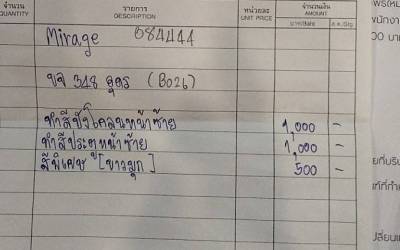 จำนวน รายการ หน่วยละ จำนวนเงิน
QUANTITY DESCRIPTION UNIT PRICE AMOUNT
บาท/Baht ส.ต./Stg
Mirage 084444
ขจ 348 อุดร (B026)
ทำสีบังโคลนหน้าซ้าย 1,000 -
ทำสีประตูหน้าซ้าย 1,000 -
สีพิเศษ [ขาวมุก] 500 -
พนักงา
00 บาท